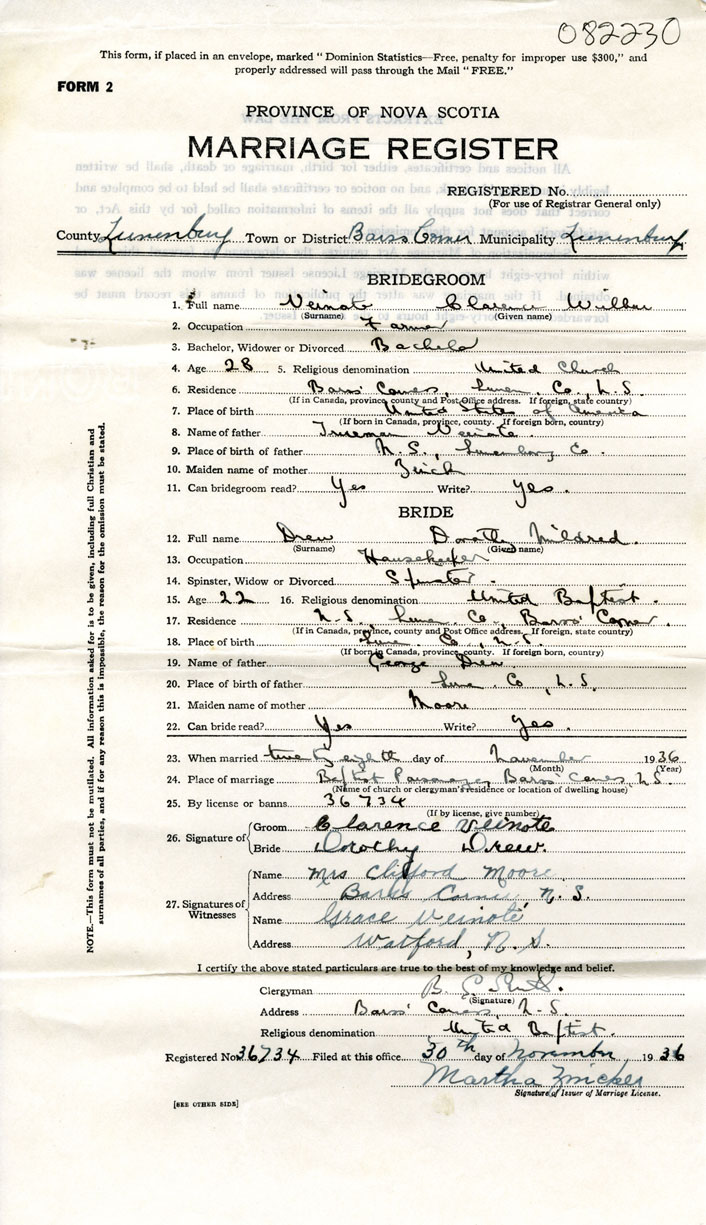 082230
This form, if placed in an envelope, marked "Dominion Statistics—Free, penalty for improper use $300," and
properly addressed will pass through the Mail "FREE."
FORM 2
PROVINCE OF NOVA SCOTIA
MARRIAGE REGISTER
REGISTERED No.
(For use of Registrar General only)
County Lunenburg Town or District Barss Corner Municipality Lunenburg
BRIDEGROOM
1. Full name Veinote Clarence Wilbur
(Surname) (Given name)
2. Occupation Farmer
3. Bachelor, Widower or Divorced Bachelor
4. Age 28 5. Religious denomination United Church
6. Residence Barss' Corner, Lunen. Co., N.S.
(If in Canada, province, county and Post Office address. If foreign, state country)
7. Place of birth United States of America
(If born in Canada, province, county. If foreign born, country)
8. Name of father Trueman Veinote
9. Place of birth of father N.S., Lunenburg Co.
10. Maiden name of mother Zinck
11. Can bridegroom read? Yes Write? Yes.
BRIDE
12. Full name Drew Dorothy Mildred.
(Surname) (Given name)
13. Occupation Housekeeper
14. Spinster, Widow or Divorced Spinster.
15. Age 22 16. Religious denomination United Baptist.
17. Residence N.S. Lunen. Co., Barss' Corner
(If in Canada, province, county and Post Office address. If foreign, state country)
18. Place of birth Lunen. Co., N.S.
(If born in Canada, province, county. If foreign born, country)
19. Name of father George Drew
20. Place of birth of father Lune. Co., N.S.
21. Maiden name of mother Moore
22. Can bride read? Yes Write? Yes.
23. When married twenty eighth day of November 1936
(Month) (Year)
24. Place of marriage Baptist Parsonage, Barss' Corner, N.S.
(Name of church or clergyman's residence or location of dwelling house)
25. By license or banns 36734
(If by license, give number)
26. Signature of Groom Clarence Veinote
Bride Dorothy Drew.
27. Signatures of Witnesses Name Mrs Clifford Moore
Address Barss Corner, N.S.
Name Grace Veinote
Address Watford, N.S.
I certify the above stated particulars are true to the best of my knowledge and belief.
Clergyman B.
(Signature)
Address Barss' Corner, N.S.
Religious denomination United Baptist.
Registered No. 36734 Filed at this office 30th day of November, 1936
Martha Zwicker
Signature of Issuer of Marriage License.
[SEE OTHER SIDE]
NOTE.—This form must not be mutilated. All information asked for is to be given, including full Christian and
surnames of all parties, and if for any reason this is impossible, the reason for the omission must be stated.